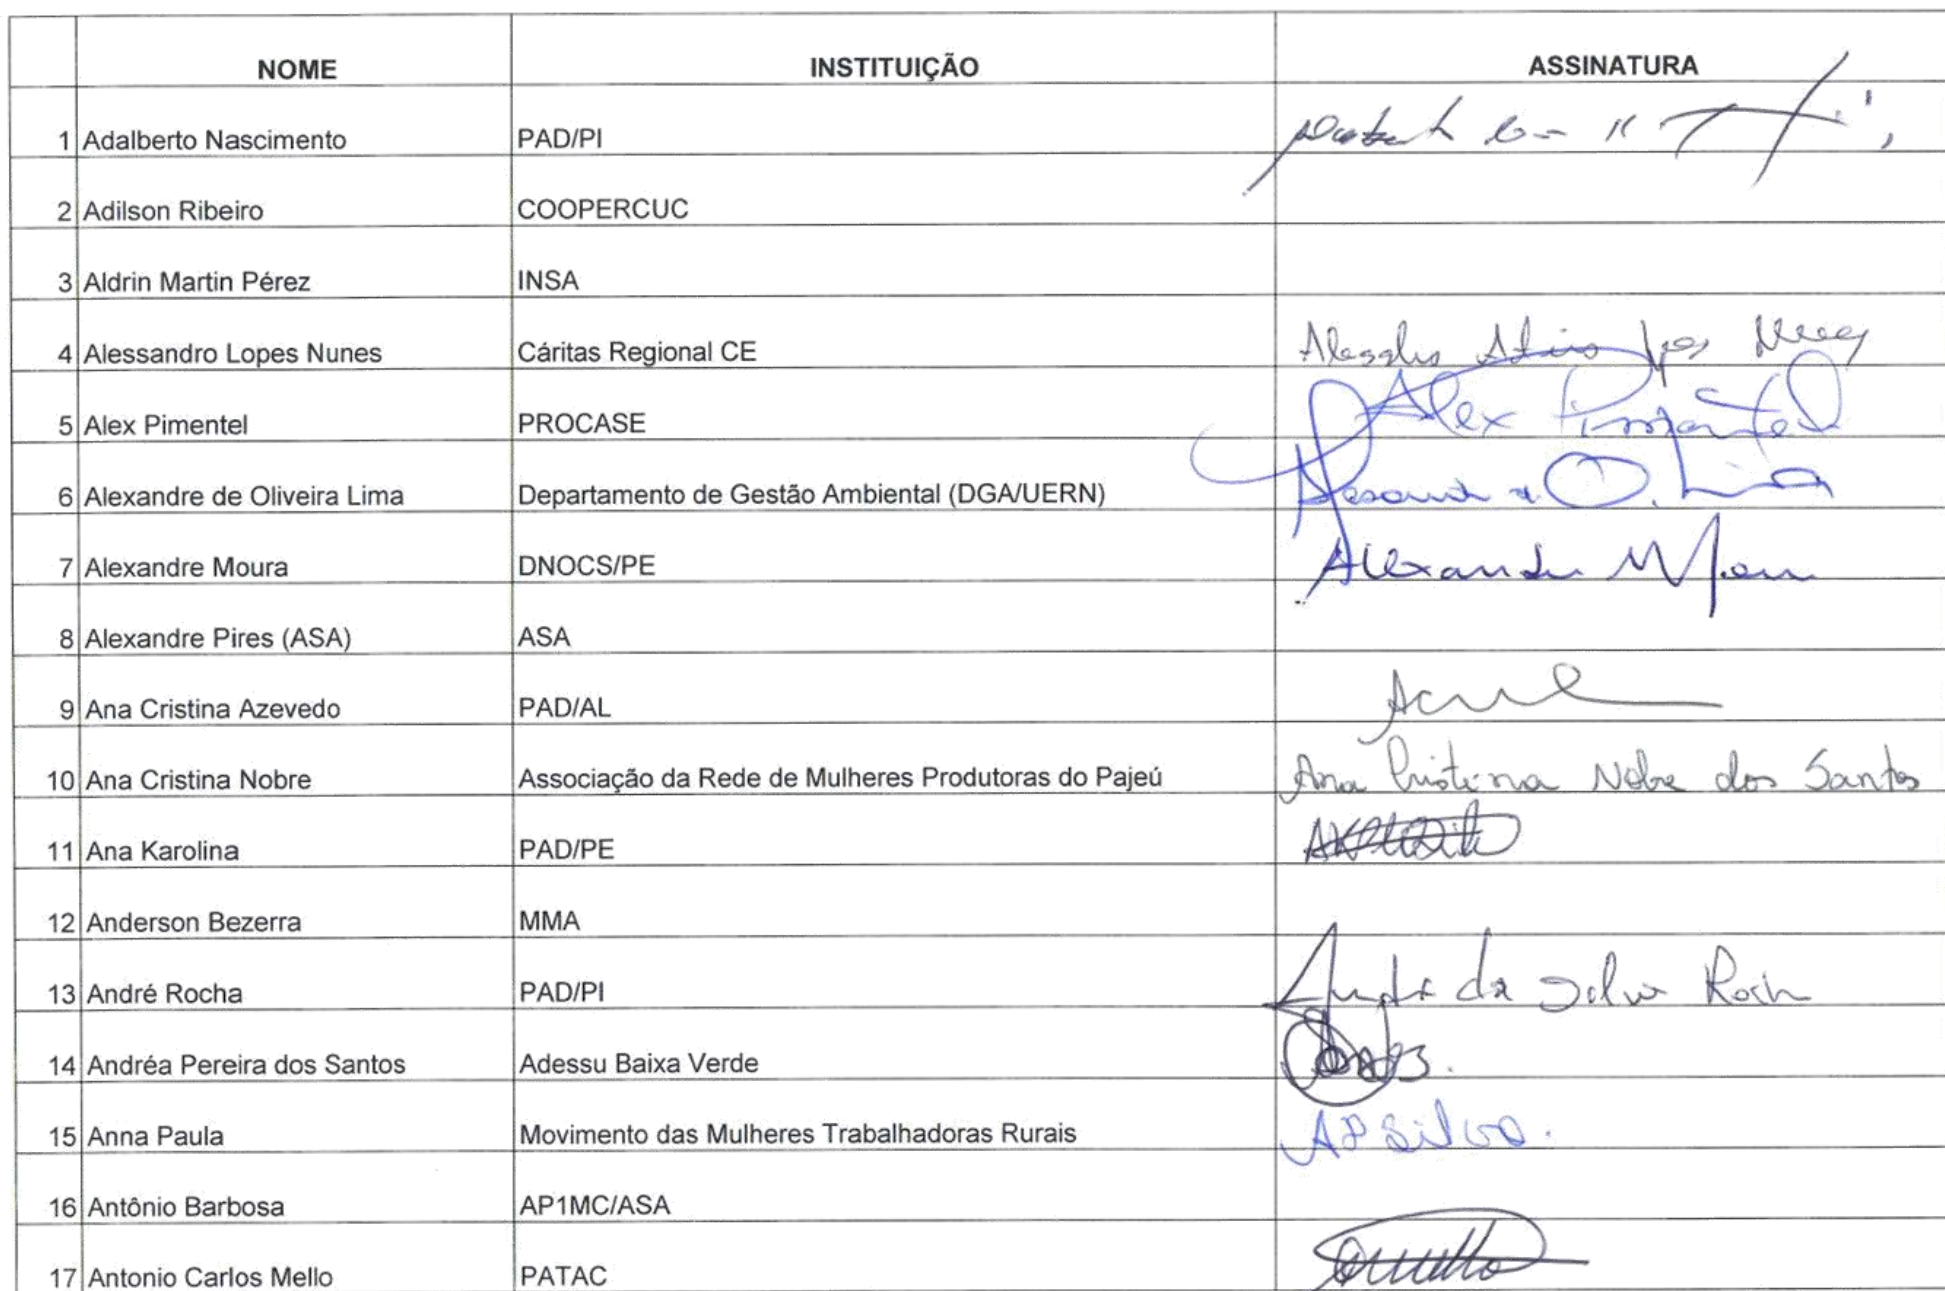 NOME INSTITUIÇÃO ASSINATURA
1 Adalberto Nascimento PAD/PI
2 Adilson Ribeiro COOPERCUC
3 Aldrin Martin Pérez INSA
4 Alessandro Lopes Nunes Cáritas Regional CE
5 Alex Pimentel PROCASE Alex Pimentel
6 Alexandre de Oliveira Lima Departamento de Gestão Ambiental (DGA/UERN)
7 Alexandre Moura DNOCS/PE Alexandre
8 Alexandre Pires (ASA) ASA
9 Ana Cristina Azevedo PAD/AL
10 Ana Cristina Nobre Associação da Rede de Mulheres Produtoras do Pajeú Ana Cristina Nobre dos Santos
11 Ana Karolina PAD/PE
12 Anderson Bezerra MMA
13 André Rocha PAD/PI André da Silva Rocha
14 Andréa Pereira dos Santos Adessu Baixa Verde
15 Anna Paula Movimento das Mulheres Trabalhadoras Rurais AP Silva.
16 Antônio Barbosa AP1MC/ASA
17 Antonio Carlos Mello PATAC